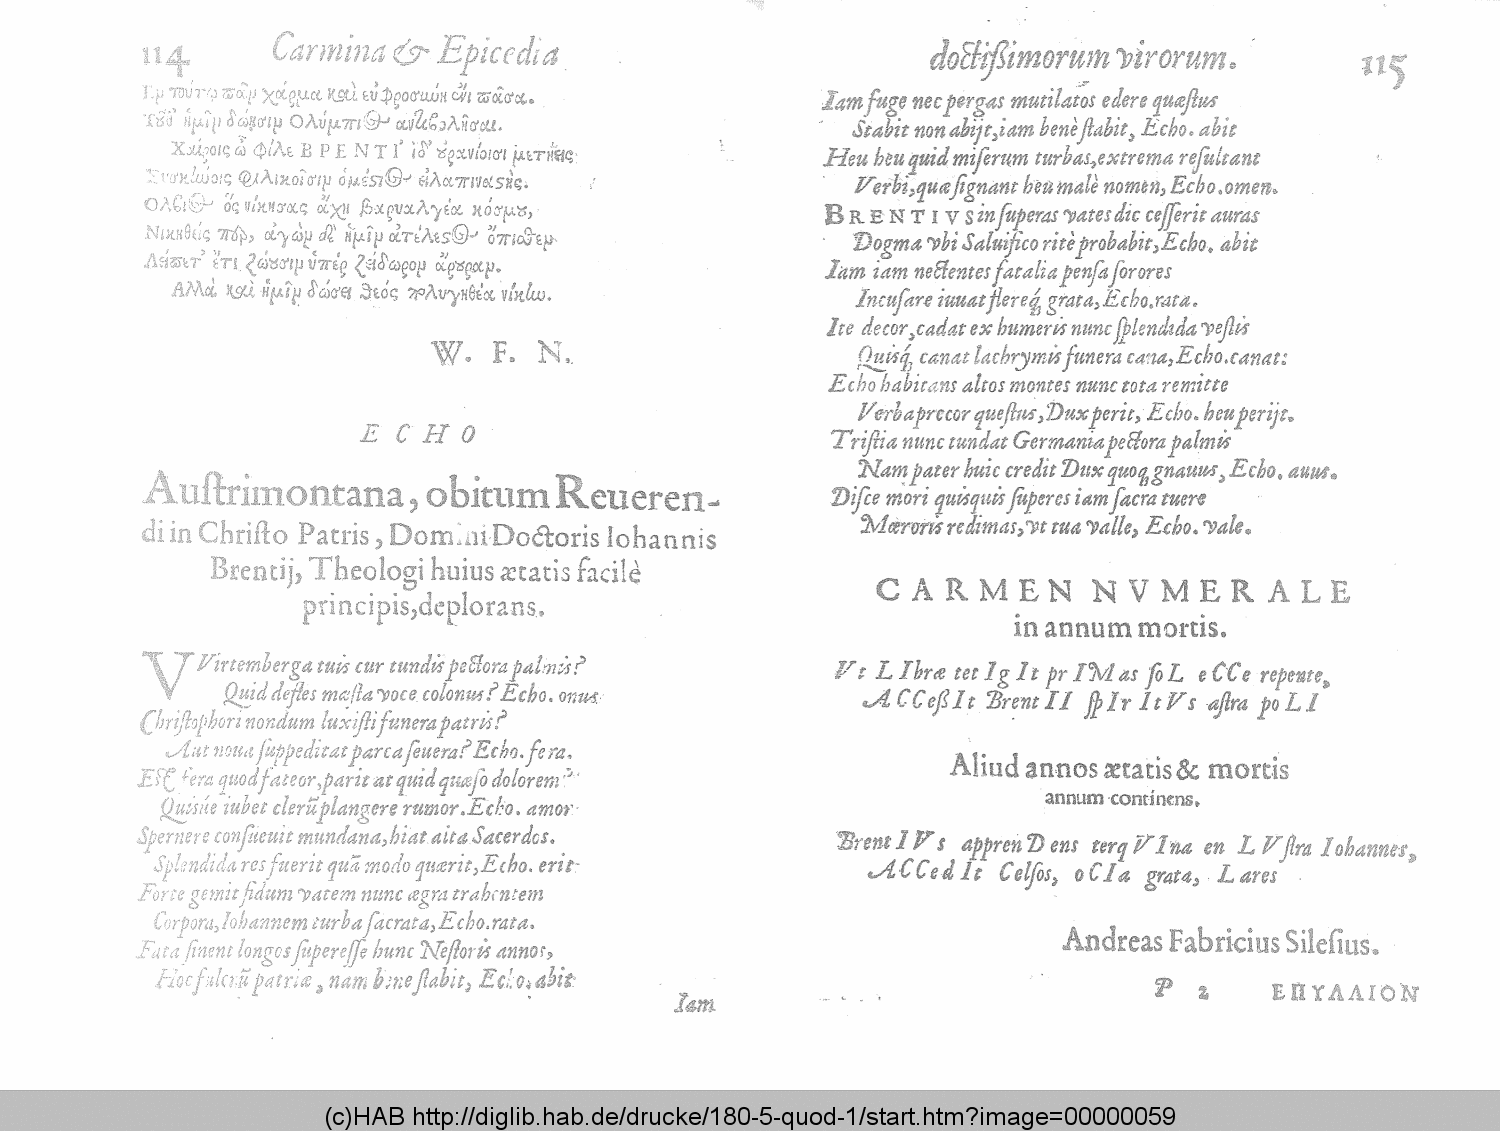 114 Carmina & Epicedia
χάρμα καὶ πᾶσα.
ἡμῖμ δώησιμ Ολύμπι
ὦ φίλε ΒΡΕΝΤΙ
φιλικοῖσιμ
ὅς νίκησας ἄχη βαρυαλγέα κόσμου,
ἀγὼμ ἡμῖμ ἀτέλεςος ὄπιοθεμ
ἔτι ζώουσιμ ὑπέρ ζείδωρομ ἄρουραμ.
Αλλὰ καὶ ἡμῖμ δώσει θεός πολυγηθέα νίκην.
W. F. N.
E C H O
Auſtrimontana, obitum Reueren-
di in Chriſto Patris, Domini Doctoris Iohannis
Brentij, Theologi huius ætatis facilè
principis, deplorans.
VVirtemberga tuis cur tundis pectora palmis?
Quid defles mæſta voce colonus? Echo. onus.
Chriſtophori nondum luxiſti funera patris?
Aut noua ſuppeditat parca ſeuera? Echo. fera.
Eſt fera quod fateor, parit at quid quæſo dolorem?
Quisúe iubet clerũ plangere rumor. Echo. amor
Spernere conſueuit mundana, hiat alta Sacerdos.
Splendida res fuerit quã modo quærit, Echo. erit
Forte gemit fidum vatem nunc ægra trahentem
Corpora, Iohannem turba ſacrata, Echo. rata.
Fata ſinent longos ſupereſſe hunc Neſtoris annos,
Hoc fulcrũ patriæ, nam bene ſtabit, Echo. abit
Iam
doctißimorum virorum. 115
Iam fuge nec pergas mutilatos edere quæſtus
Stabit non abijt, iam benè ſtabit, Echo. abit
Heu heu quid miſerum turbas, extrema reſultant
Verbi, quæ ſignant heu malè nomen, Echo. omen.
BRENTIVS in ſuperas vates dic ceſſerit auras
Dogma vbi Saluifico ritè probabit, Echo. abit
Iam iam nectentes fatalia penſa ſorores
Incuſare iuuat flereq́ grata, Echo. rata.
Ite decor, cadat ex humeris nunc ſplendida veſtis
Quisq́ canat lachrymis funera cana, Echo. canat:
Echo habitans altos montes nunc tota remitte
Verba precor queſtus, Dux perit, Echo. heu perijt.
Triſtia nunc tundat Germania pectora palmis
Nam pater huic credit Dux quoq gnauus, Echo. auus.
Diſce mori quisquis ſuperes iam ſacra tuere
Mœroris redimas, vt tua valle, Echo. vale.
CARMEN NVMERALE
in annum mortis.
Vt LIbræ tet IgIt prIMas ſoL eCCe repente,
ACCeßIt BrentII ſpIrItVs aſtra poLI
Aliud annos ætatis & mortis
annum continens.
BrentIVs apprenDens terq VIna en LVſtra Iohannes,
ACCedIt Celſos, oCIa grata, Lares
Andreas Fabricius Sileſius.
P 2 ΕΠΥΛΛΙΟΝ
(c)HAB http://diglib.hab.de/drucke/180-5-quod-1/start.htm?image=00000059